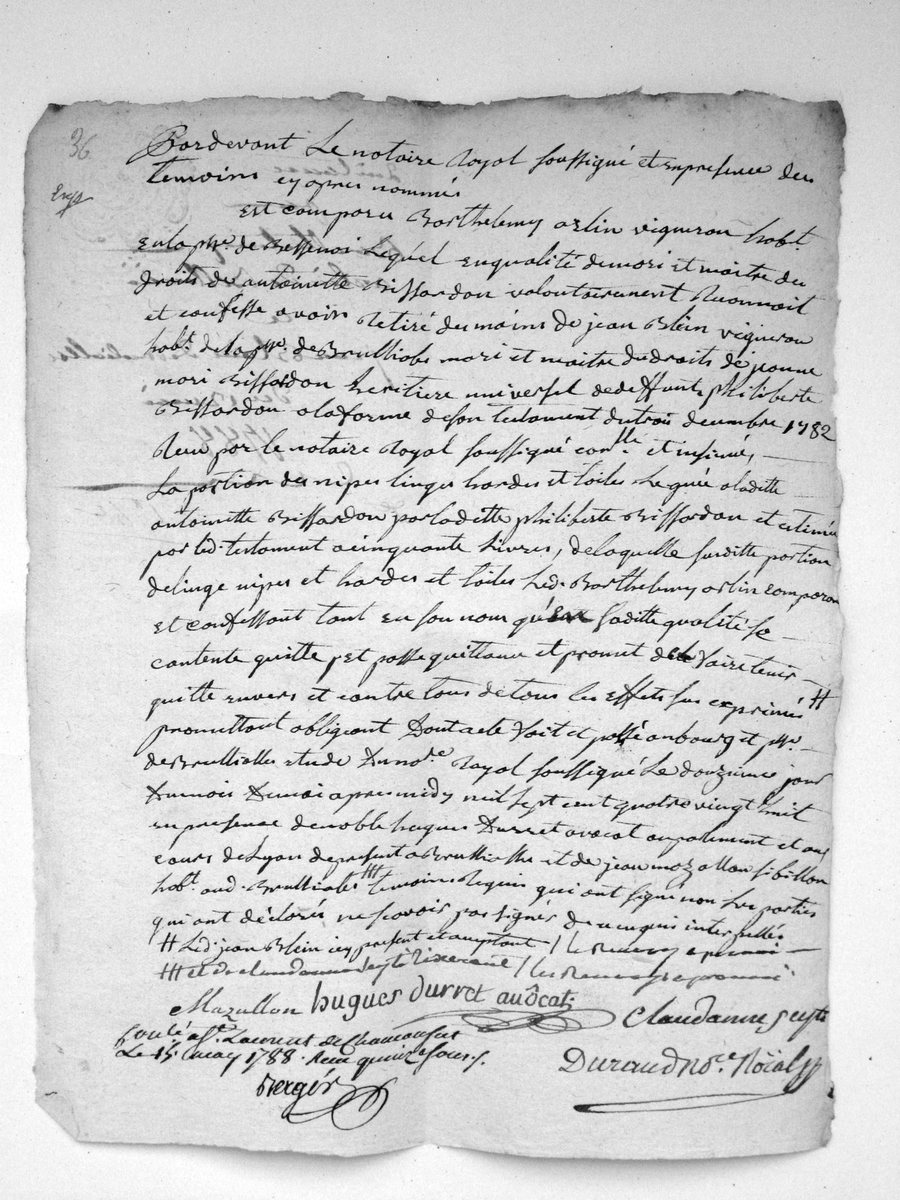 36
Exp
Pardevant Le notaire Royal soussigné et enpresence des
temoins cy apres nommés
est comparu Barthelemy arlin vigneron habt.
enlapsse. de Bessenoi Lequel enqualité demari et maitre des
droits de antoinette Biffardon volontairement Reconnoit
et confesse avoir Retiré des mains de jean Blein vigneron
habt. de lapsse. de Brulliolles mari et maitre des droits de jeanne
mari Biffardon heritiere universel dedeffunte philiberte
Biffardon alaforme deson testament dutrois decembre 1782
Receu par le notaire Royal soussigné conllé et insinué,
La portion des nipes linges hardes et toiles Leguée aladitte
antoinette Biffardon parladitte philiberte Biffardon et estimée
par led. testament acinquante Livres, delaquelle susditte portion
delinge nipes et hardes et toiles Led. Barthelemy arlin comparan
et confessant tant en son nom qu'en saditte qualité se
contente quitte et passe quittance et promet de faire tenir
quitte envers et contre tous detous les effets sus exprimés #
promettant obligeant Dont acte fait et passé aubourg et psse.
de Brulliolles etude Dunore. Royal soussigné Le douzieme jour
Dumois Demai apres midy mil sept cent quatre vingt huit
en presence de noble hugues Durret avocat auparlement et aux
cours de Lyon depresent a Brulliolles et de jean mazallon
habt. aud. Brulliolles ## temoins Requis qui ont signé non Les parties
qui ont déclarés ne scavoir pas signés de ce enquis interpellés
# Led. jean Blein icy present et acceptant / le Renvoy aprouvé
## et de claudanne / les Renvois aprouvé
Mazallon hugues Durret avôcat.
claudanne
Controlé a St. Laurent de Chamousset
Le 15. may 1788. Reçu quinze sous /.
Durand nore. Röial
Berger